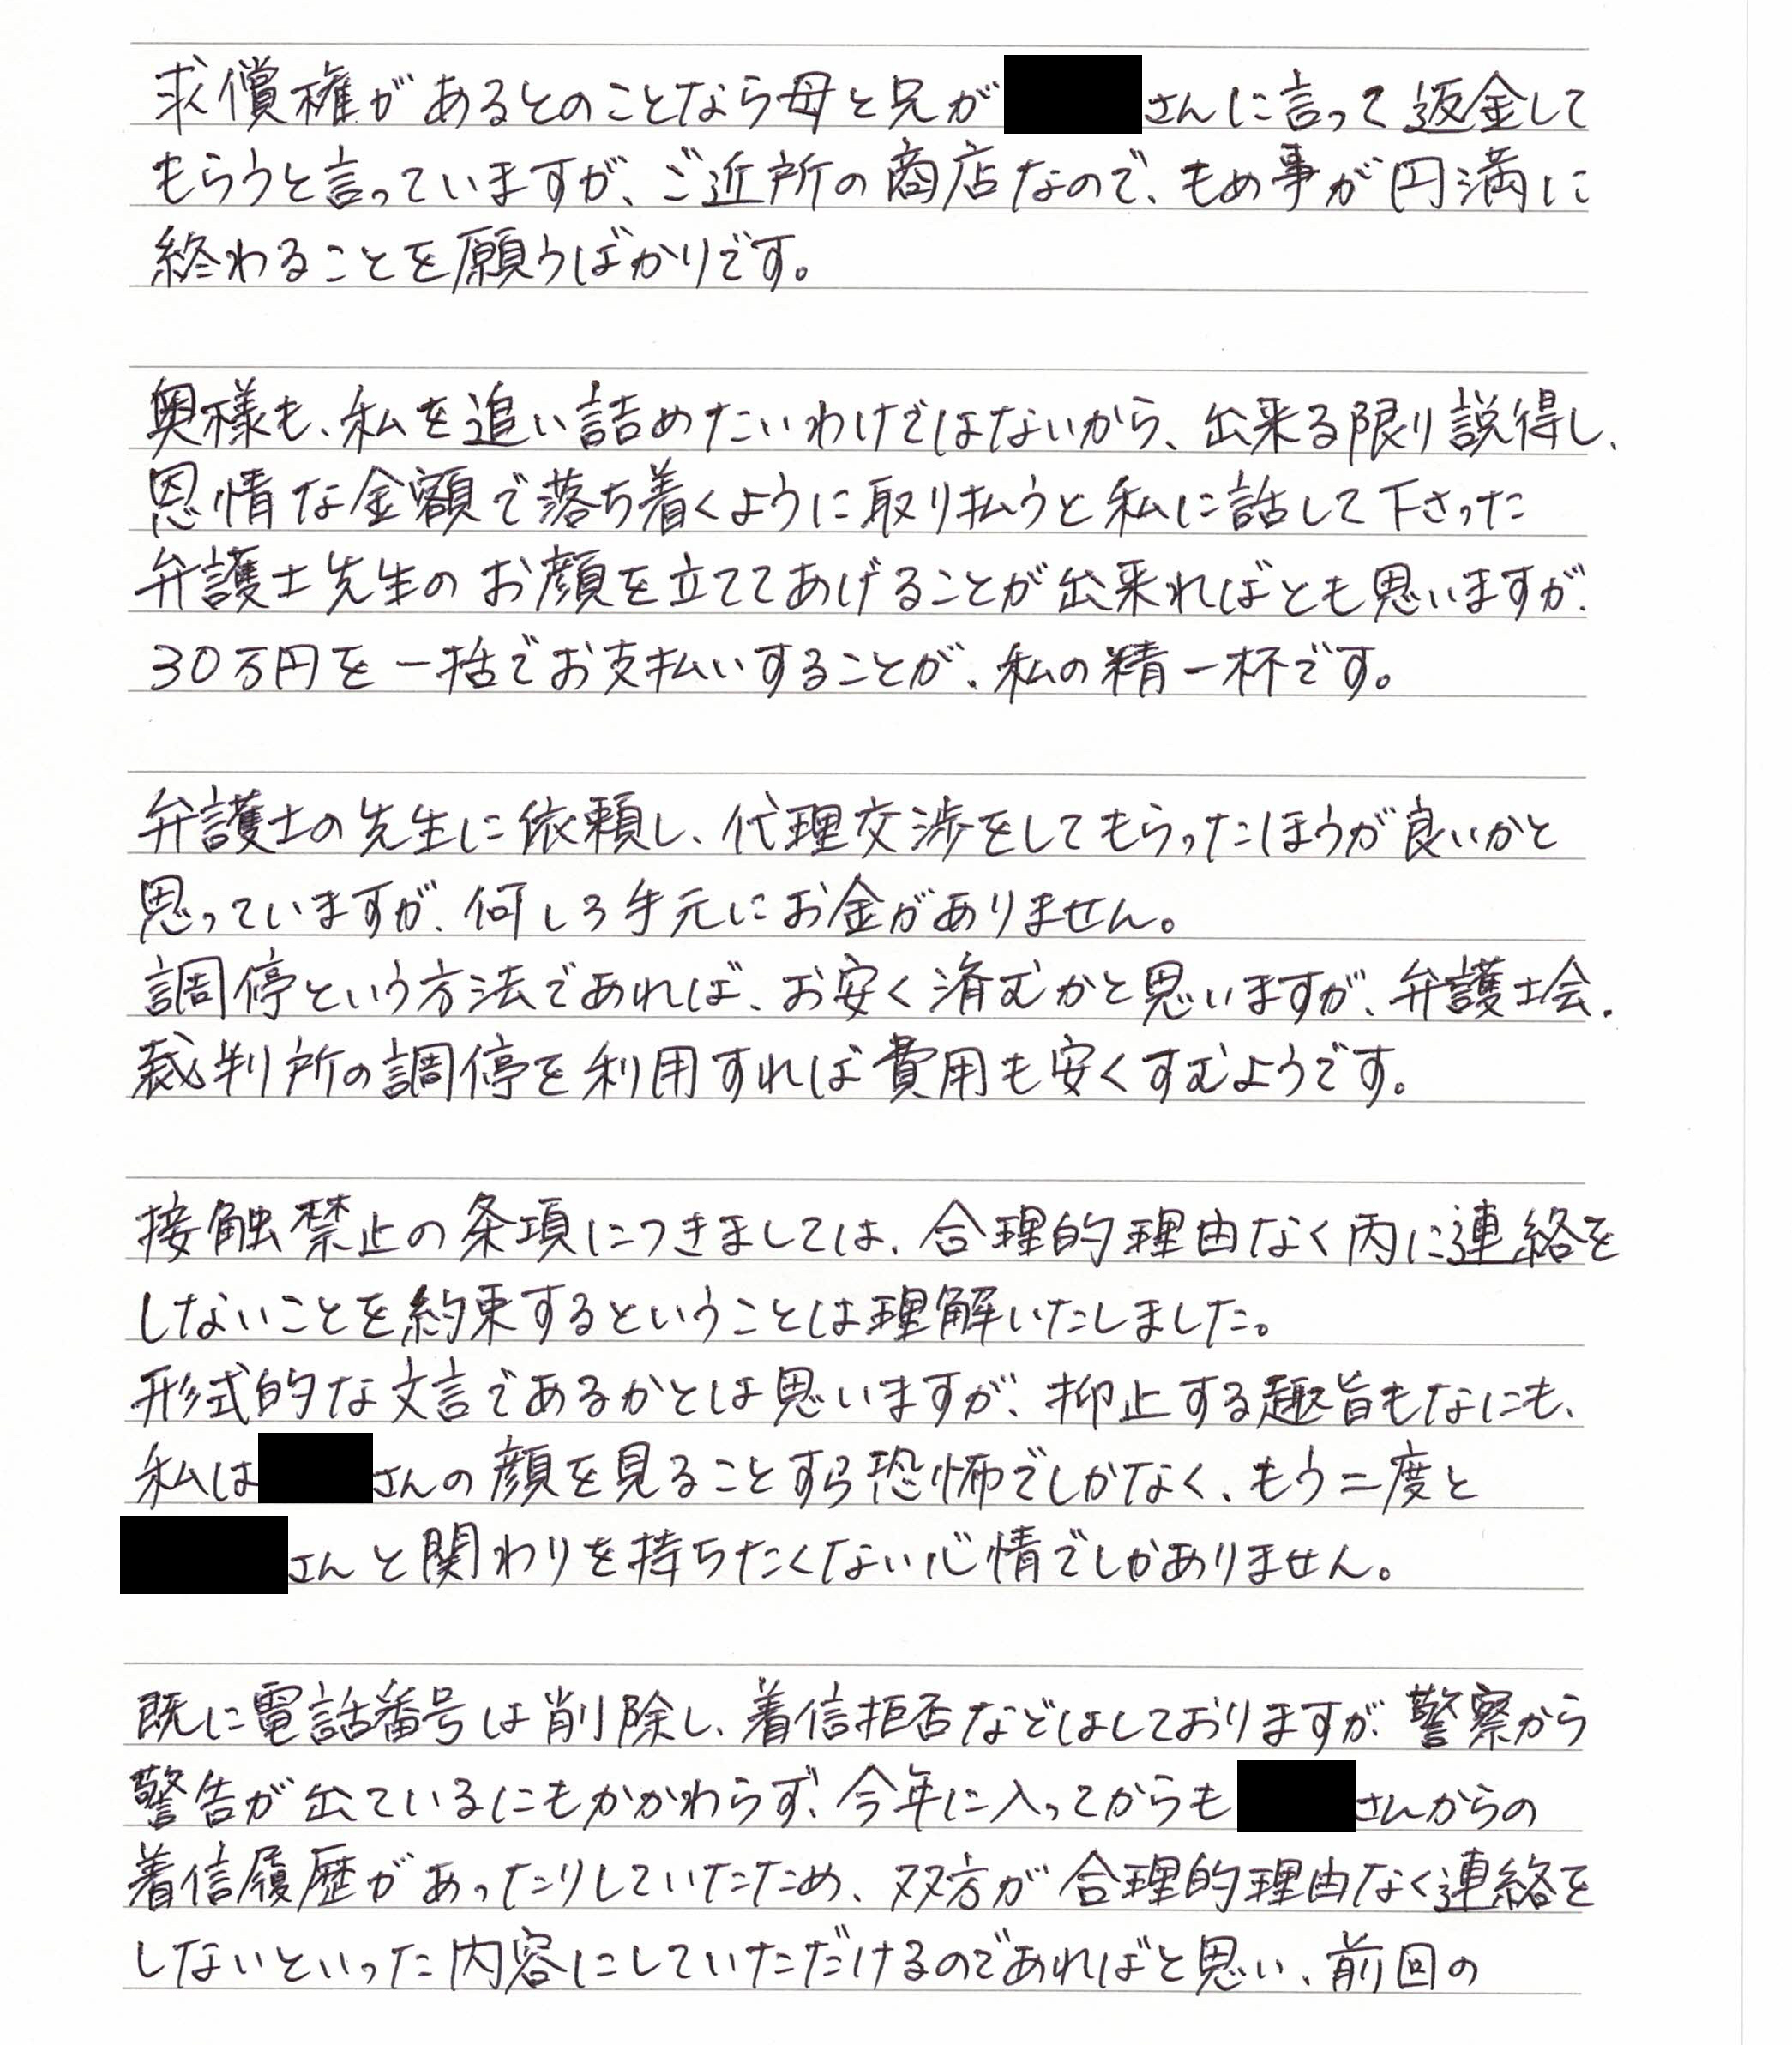 求償権があるとのことなら母と兄が さんに言って返金して
もらうと言っていますが、ご近所の商店なので、もめ事が円満に
終わることを願うばかりです。
奥様も、私を追い詰めたいわけではないから、出来る限り説得し、
恩情な金額で落ち着くように取り払うと私に話して下さった
弁護士先生のお顔を立ててあげることが出来ればとも思いますが、
30万円を一括でお支払いすることが、私の精一杯です。
弁護士の先生に依頼し、代理交渉をしてもらったほうが良いかと
思っていますが、何しろ手元にお金がありません。
調停という方法であれば、お安く済むかと思いますが、弁護士会、
裁判所の調停を利用すれば費用も安くすむようです。
接触禁止の条項につきましては、合理的理由なく丙に連絡を
しないことを約束するということは理解いたしました。
形式的な文言であるかとは思いますが、抑止する趣旨もなにも、
私は さんの顔を見ることすら恐怖でしかなく、もう二度と
さんと関わりを持ちたくない心情でしかありません。
既に電話番号は削除し、着信拒否などはしておりますが、警察から
警告が出ているにもかかわらず、今年に入ってからも さんからの
着信履歴があったりしていたため、双方が合理的理由なく連絡を
しないといった内容にしていただけるのであればと思い、前回の